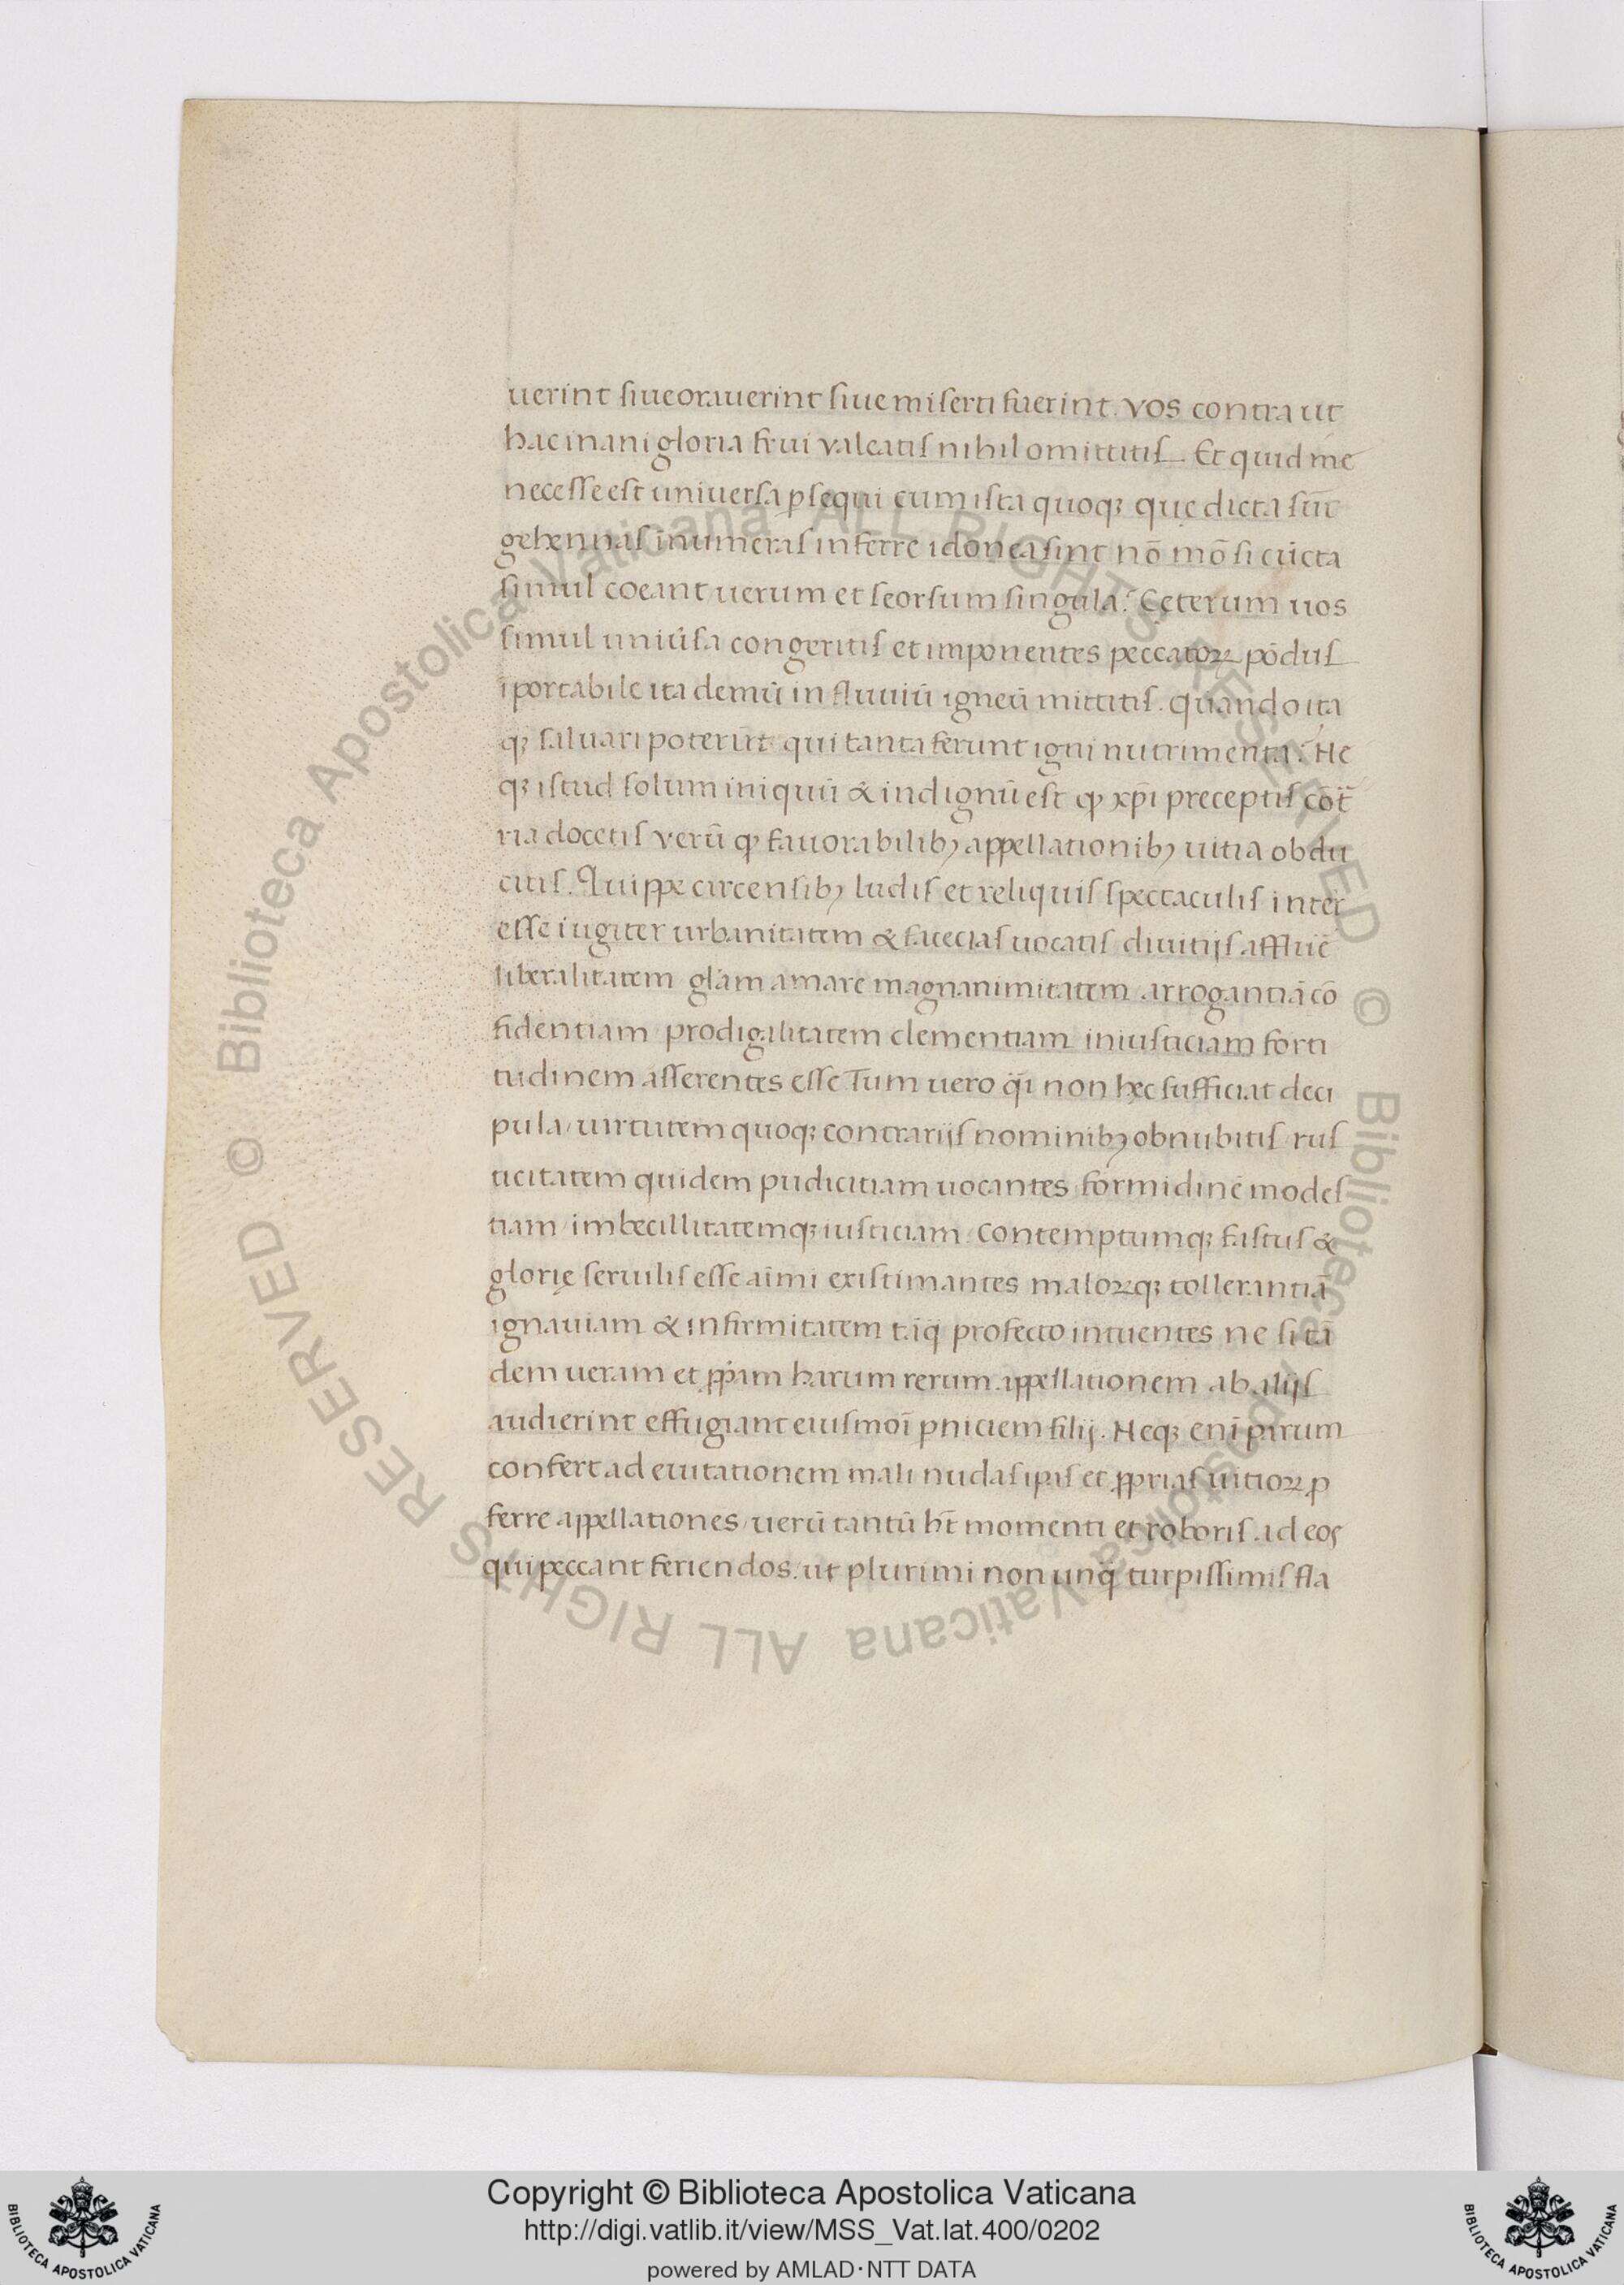 uerint siue orauerint siue miserti fuerint. vos contra ut
hac inani gloria frui valeatis nihil omittitis. Et quid me
necesse est uniuersa ꝑsequi cum ista quoqꝫ que dicta sūt
gehennas īnumeras inferre idonea sint nō mō si cūcta
simul coeant uerum et seorsum singula? Cęterum uos
simul uniūsa congeritis et imponentes peccatoꝝ pōdus
īportabile ita demū in fluuiū igneū mittitis. Quando ita
qꝫ saluari poterūt qui tanta ferunt igni nutrimenta? Ne
qꝫ istud solum iniquū & indignū est ꝙ xp̄i preceptis cōt̄
ria docetis verū ꝙ fauorabilibꝫ appellationibꝫ uitia obdu
citis. Quippe circensibꝫ ludis et reliquis spectaculis inter
esse iugiter urbanitatem & facecias uocatis diuitijs affluē
liberalitatem gl̄am amare magnanimitatem arrogantiā cō
fidentiam prodigalitatem clementiam iniusticiam forti
tudinem asserentes esse Tum uero q̄i non hęc sufficiat deci
pula / uirtutem quoqꝫ contrarijs nominibꝫ obnubitis / rus
ticitatem quidem pudicitiam uocantes formidinē modes
tiam / imbecillitatemqꝫ iusticiam contemptumqꝫ fastus &
glorię seruilis esse aīmi existimantes maloꝝqꝫ tollerantiā
ignauiam & infirmitatem tāq̄ profecto intuentes ne si tā
dem ueram et ꝓp̄am harum rerum appellationem ab alijs
audierint effugiant eiusmoī ꝑniciem filij. Neqꝫ enī parum
confert ad euitationem mali nudas ip̄as et ꝓprias uitioꝝ ꝓ
ferre appellationes / uerū tantū ht̄ momenti et roboris ad eos
qui peccant feriendos / ut plurimi non unq̄ turpissimis fla
Copyright © Biblioteca Apostolica Vaticana
http://digi.vatlib.it/view/MSS_Vat.lat.400/0202
powered by AMLAD·NTT DATA
BIBLIOTECA APOSTOLICA VATICANA
BIBLIOTECA APOSTOLICA VATICANA
© Biblioteca Apostolica Vaticana ALL RIGHTS RESERVED
© Biblioteca Apostolica Vaticana ALL RIGHTS RESERVED